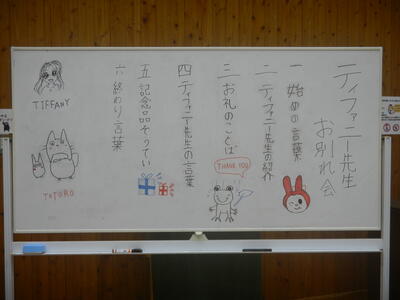 ティファニー先生
お別れ会
一 始めの言葉
二 ティファニー先生の紹介
三 お礼のことば
THANK YOU
四 ティファニー先生の言葉
五 記念品そうてい
六 終わりの言葉
TIFFANY
TOTORO